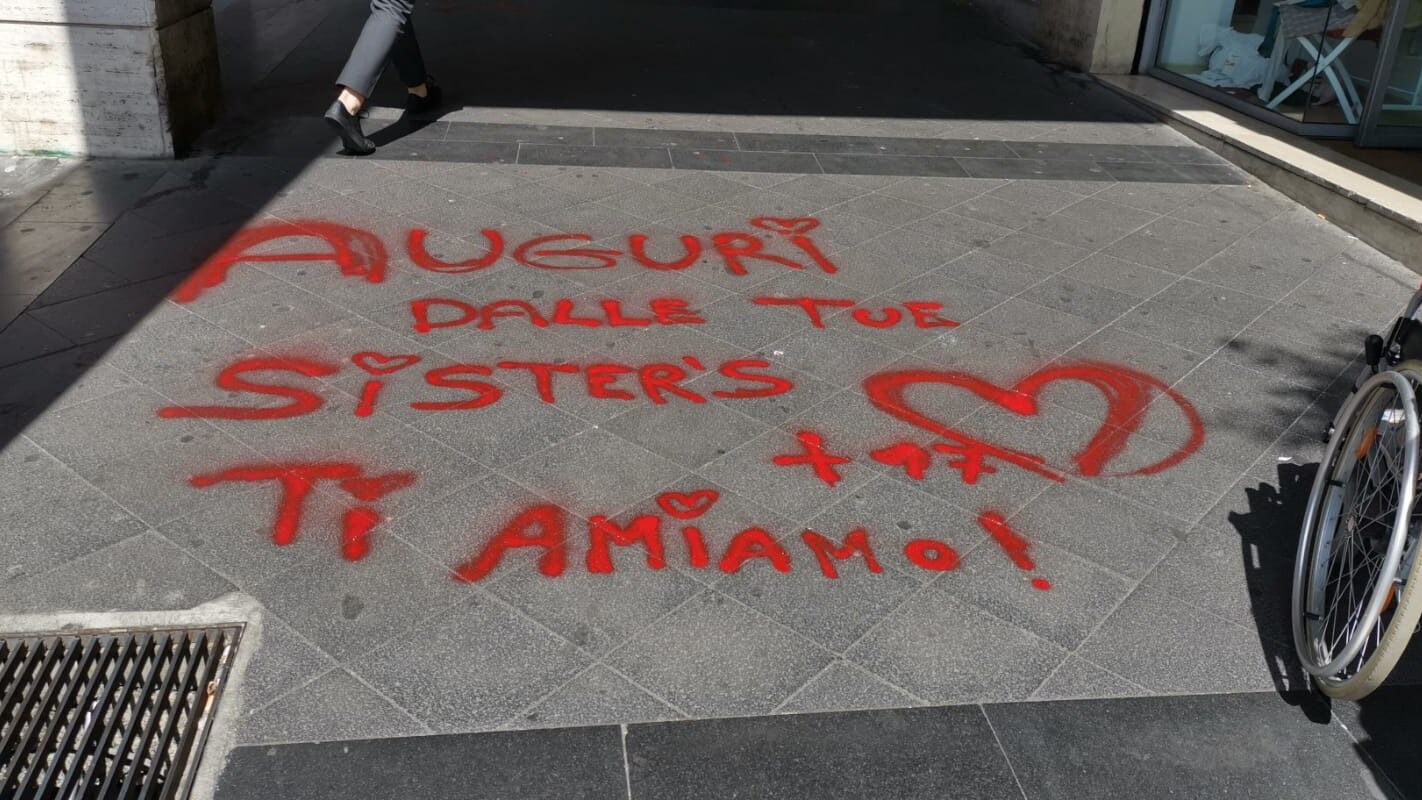 AUGURI
DALLE TUE
SISTER'S
+17
Ti AMiAMo!